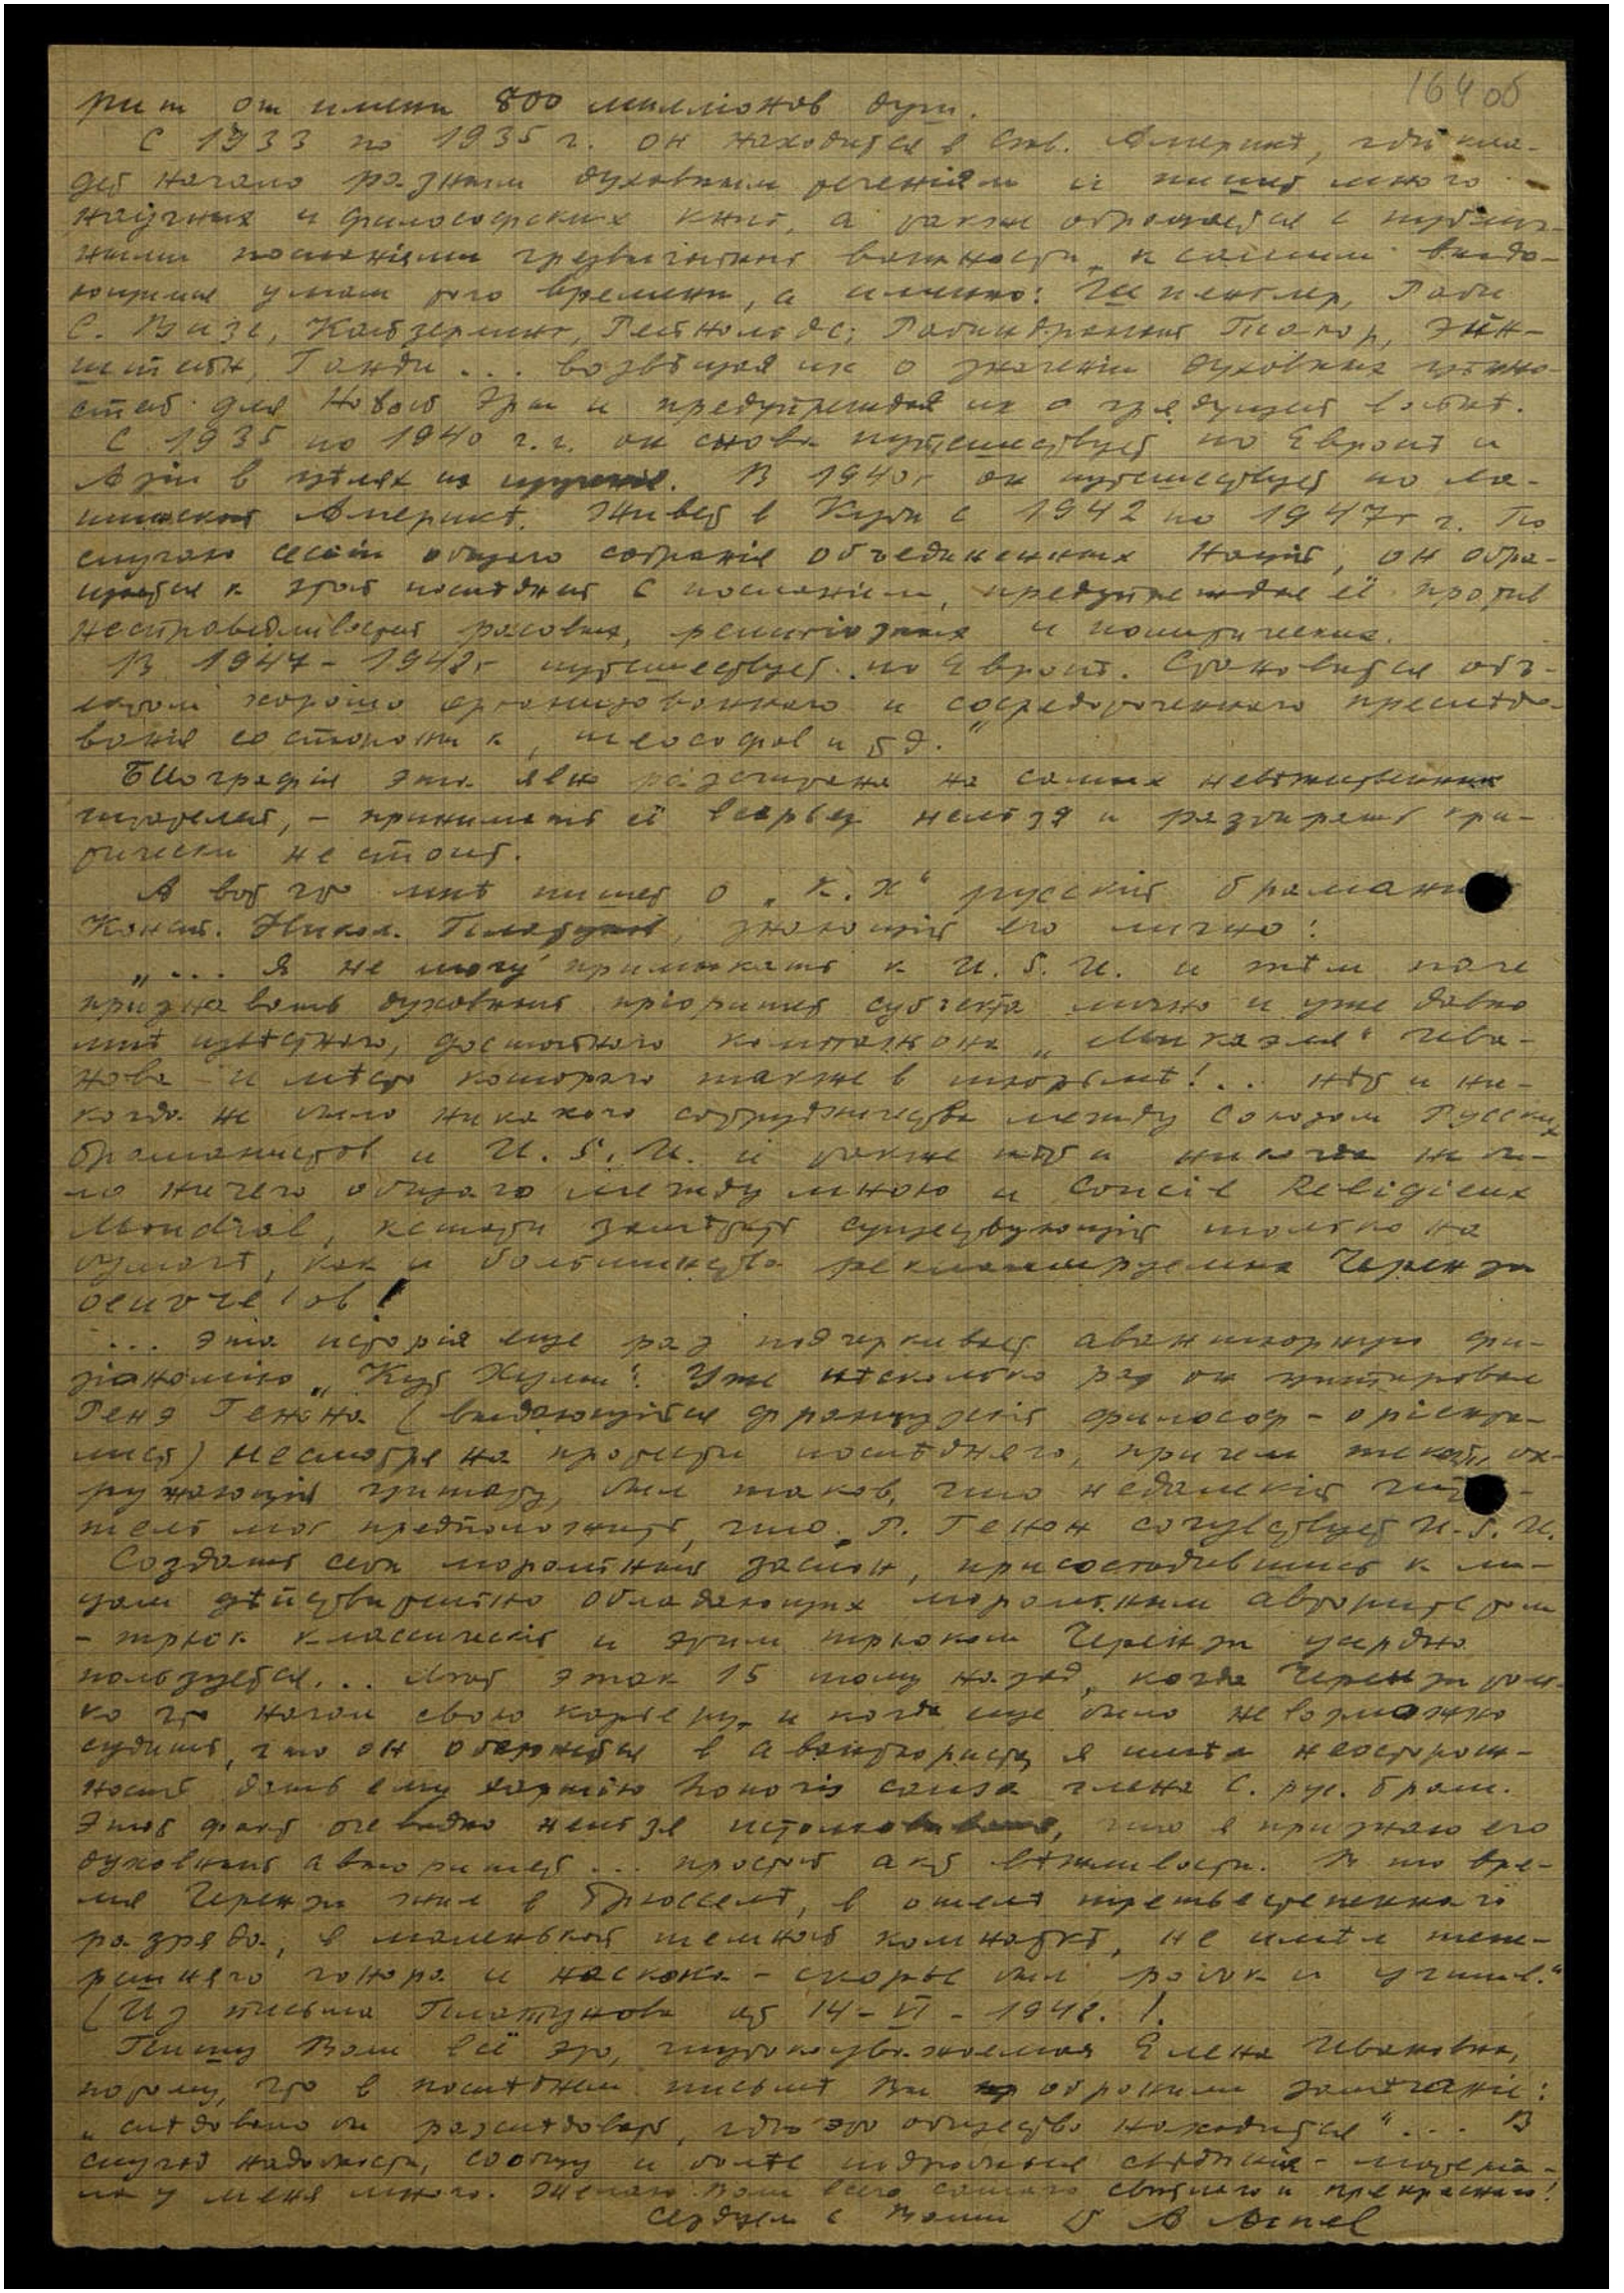 164 об
рит от имени 800 миллионов душ.
С 1933 по 1935 г. он находится в Сев. Америкѣ, гдѣ кла-
дет начало разным духовным течениям и пишет много
научных и философских книг, а также обращается с публич-
ными посланиями чрезвычайной важности к самым выда-
ющимся умам того времени, а именно: Шпенглер, Раби
С. Вайз, Кайзерлинг, Рейнольдс; Рабиндранат Тагор, Эйн-
штейн, Ганди... возвѣщая им о значении духовных цѣнно-
стей для Новой Эры и предупреждая их о грядущей войнѣ.
С 1935 по 1940 г.г. он снова путешествует по Европѣ и
Азіи в цѣлях их изучения. В 1940 г он путешествует по ла-
тинской Америкѣ. Живет в Кубѣ с 1942 по 1947 г. По
случаю сессіи общаго собрания объединенных Націй, он обра-
щается к этой послѣдней с посланіем, предупреждая её против
несправедливостей расовых, религіозных и политических.
В 1947-1948 г путешествует по Европѣ. Становится объ-
ектом хорошо организованного и сосредоточенного преслѣдо-
ванія со стороны к, теософов и т д."
Біография эта явно разсчитана на самых невѣжественных
читателей, - принимать её всерьез нельзя и разбирать кри-
тически не стоит.
А вот что мнѣ пишет о "К.Х" русский браманист
Конст. Никол. Платунов, знающий его лично:
"... Я не могу примыкать к U.S.U. и тѣм паче
признавать духовный пріоритет субъекта лично и уже давно
мнѣ извѣстного, достойного компаньона "Микаэля" Ива-
нова и мѣсто котораго также в тюрьмѣ!.. Нѣт и ни-
когда не было никакого сотрудничества между Союзом Русских
браманистов и U.S.U. и также нѣт и никогда не бы-
ло ничего общаго между мною и Concil Religieux
Mondial, кстати замѣтить существующій только на
бумагѣ, как и большинство рекламируемых Черензи
oeuvre'ов!
... Эта исторія еще раз подчеркивает авантюрную фи-
зіономію "Кут Хуми". Уже нѣсколько раз он цитировал
Рене Генона (выдающійся французскій философ-оріента-
лист) несмотря на протесты послѣдняго, причем текст, ок-
ружающий цитату, был таков, что недалекій чита-
тель мог предположить, что Р. Генон сочувствует U.S.U.
Создать себѣ моральный заслон, присосѣдившись к ли-
цам дѣйствительно обладающих моральным авторитетом
- трюк классическій и этим трюком Черензи усердно
пользуется... Лѣт этак 15 тому назад, когда Черензи толь-
ко что начал свою карьеру, и когда еще было невозможно
судить, что он обернётся в авантюриста, я имѣл неосторож-
ность дать ему хартію honoris causa члена С. рус. брам.
Этот факт очевидно нельзя истолковывать, что я признаю его
духовный авторитет... простой акт вѣжливости. В то вре-
мя Черензи жил в Брюсселѣ, в отелѣ третьестепеннаго
разряда, в маленькой темной комнаткѣ, не имѣл тепе-
решняго гонора и наскока - скорѣе был робок и учтив."
(Из письма Платунова от 14-VI-1948.).
Пишу Вам всё это, глубокоуважаемая Елена Ивановна,
потому, что в послѣднем письмѣ Вы обронили замѣчаніе:
"слѣдовало бы разслѣдовать, гдѣ это общество находится"... В
случаѣ надобности, сообщу и болѣе подробныя свѣдѣния - матеріа-
ла у меня много. Желаю Вам всего самаго свѣтлаго и прекраснаго!
Сердцем с Вами А Асѣев